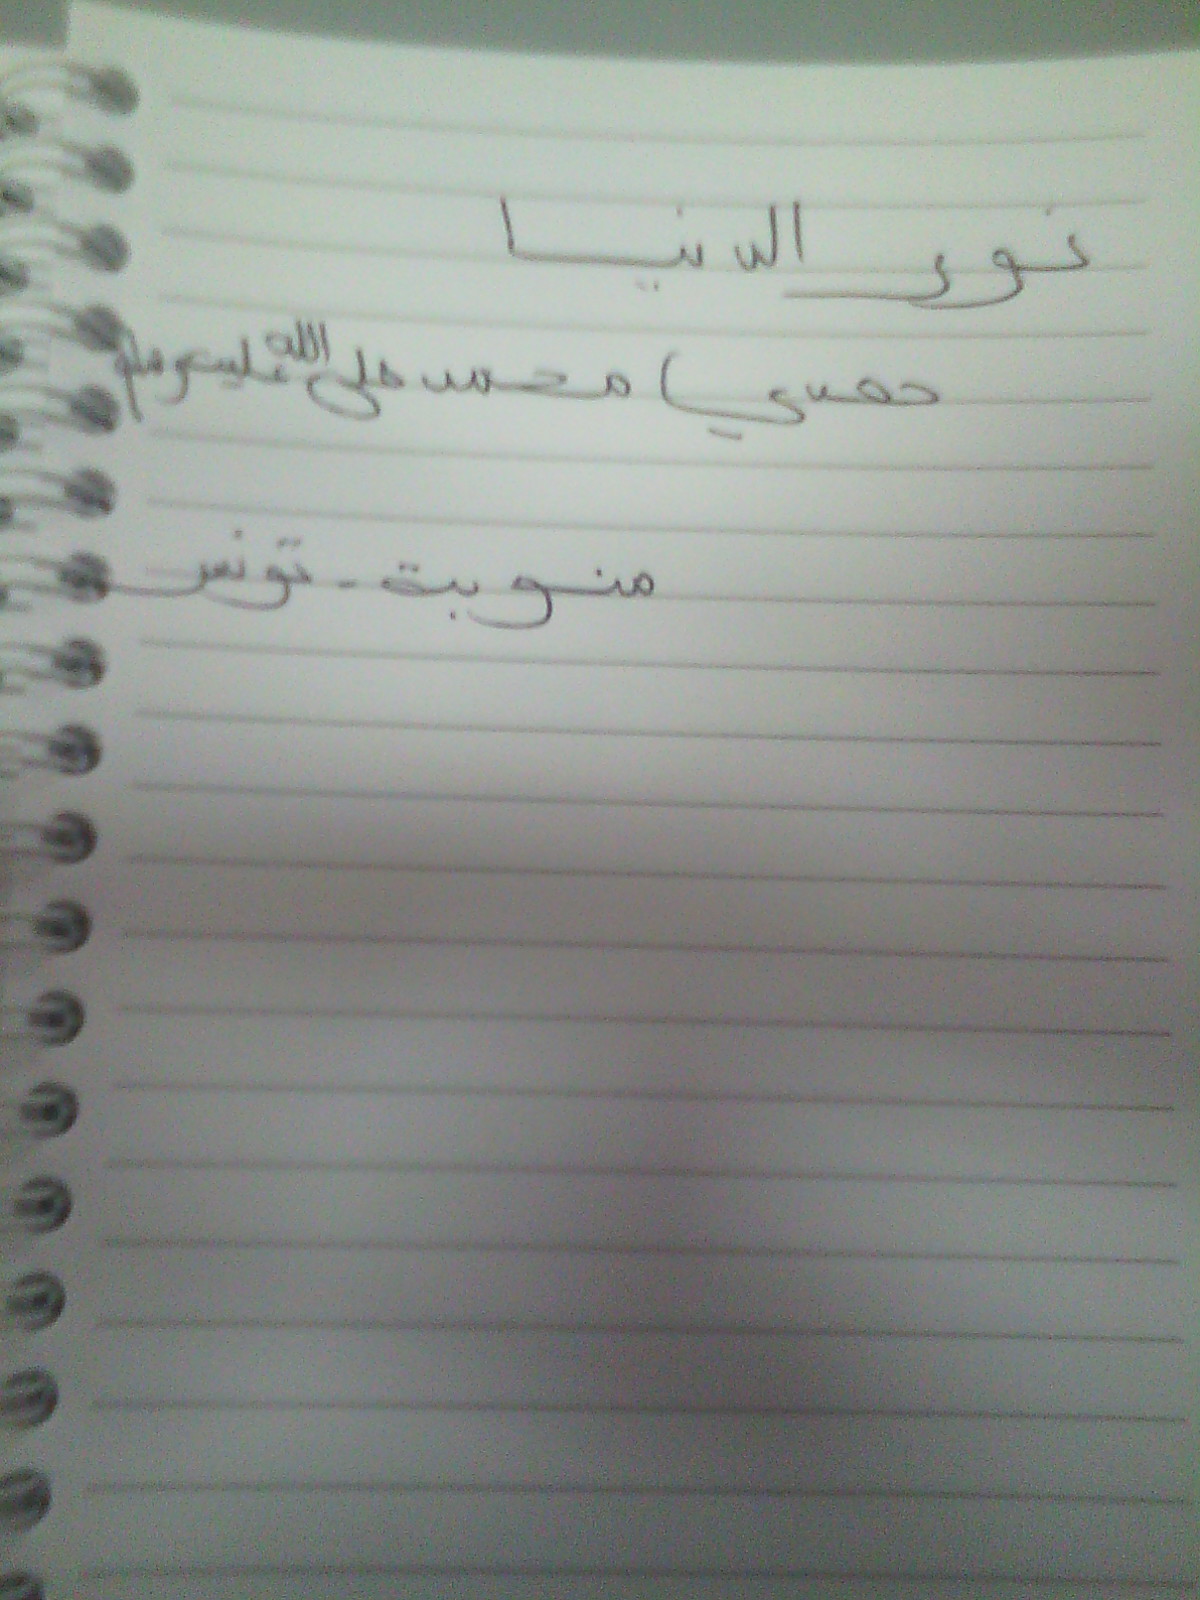 نور الدنيا
محمد صلى الله عليه وسلم
منوبة - تونس